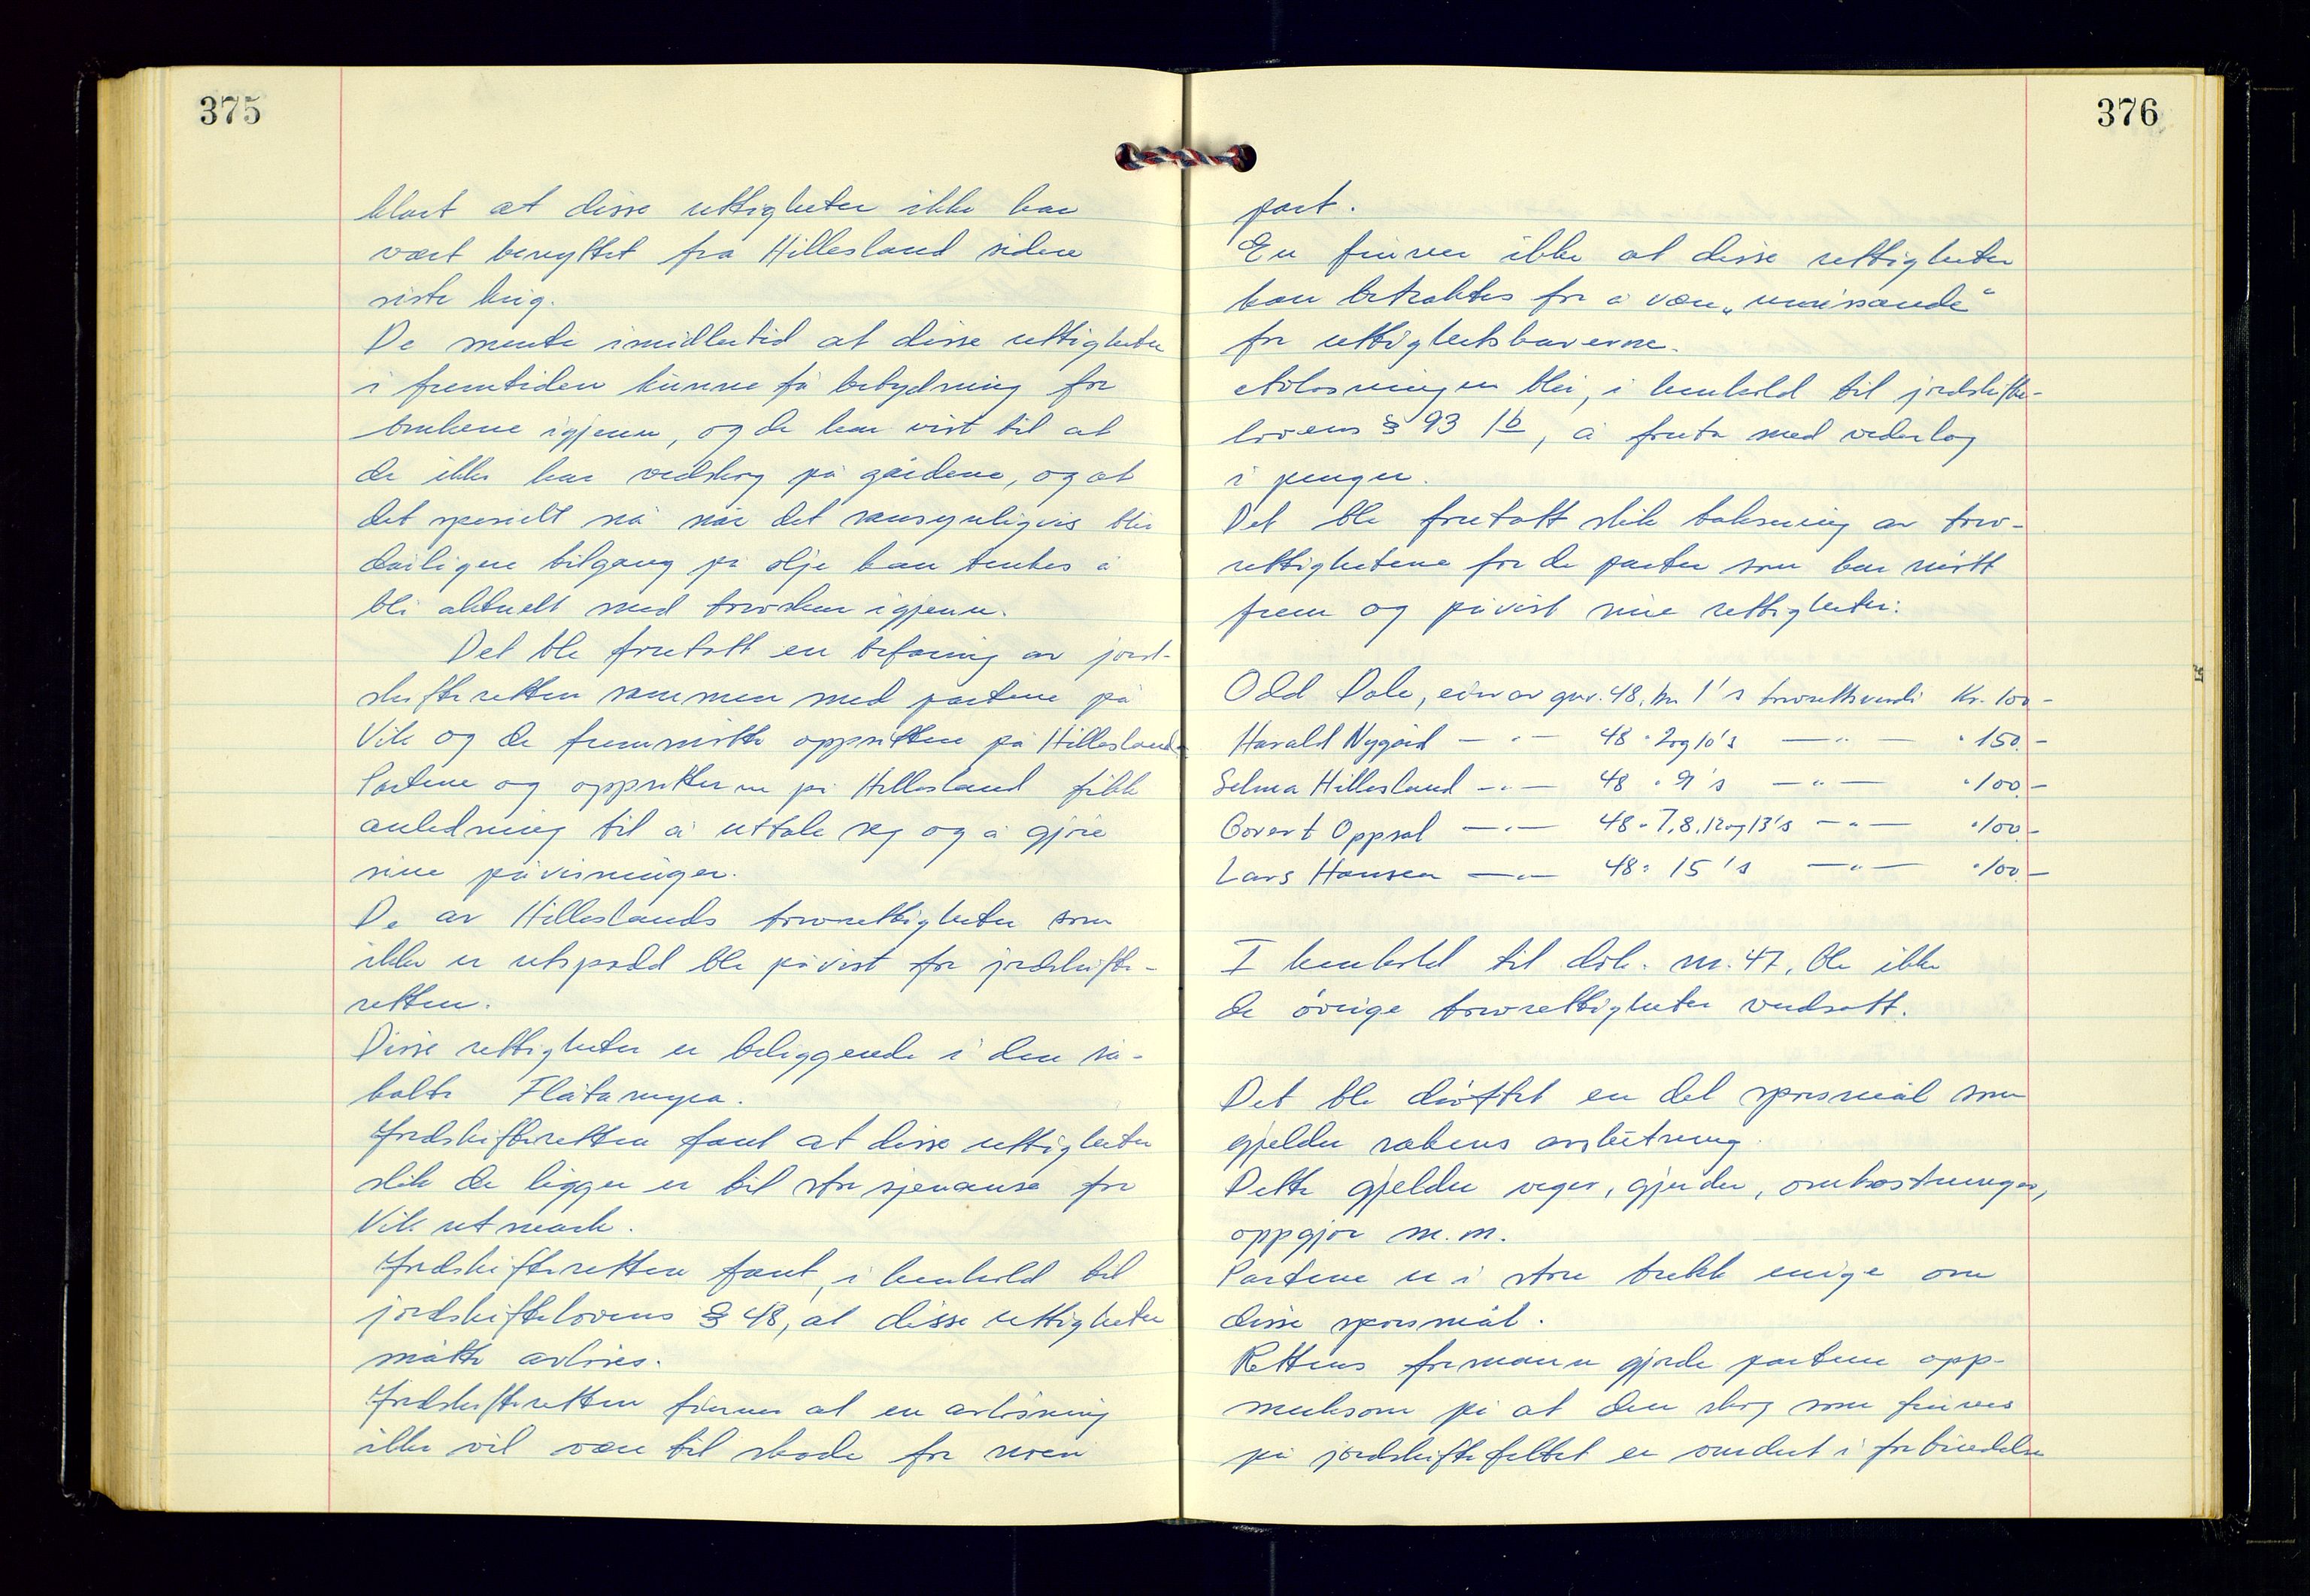 375
klart at disse rettigheter ikke har
vært benyttet fra Hillesland siden
siste krig.
De mente imidlertid at disse rettigheter
i fremtiden kunne få betydning for
brukene igjenn, og de har vist til at
de ikke har vedskog på gårdene, og at
det spesielt nå når det sansynligvis blir
dårligere tilgang på olje kan tenkes å
bli aktuelt med torvskur igjenn.
Det ble foretatt en befaring av jord-
skifteretten sammen med partene på
Vik og de fremmøtte oppsittere på Hillesland.
Partene og oppsitterne på Hillesland fikk
anledning til å uttale seg og å gjøre
sine påvisninger.
De av Hilleslands torvrettigheter som
ikke er utspadd ble påvist for jordskifte-
retten.
Disse rettigheter er beliggende i den så-
kalte Flåtamyra.
Jordskifteretten fant at disse rettigheter
slik de ligger er til stor sjenanse for
Vik utmark.
Jordskifteretten fant, i henhold til
jordskiftelovens § 48, at disse rettigheter
måtte avløses.
Jordskifteretten finner at en avløsning
ikke vil være til skade for noen
376
part.
En finner ikke at disse rettigheter
kan betraktes for å være „umissande"
for rettighetshaverne.
Avløsningen blir, i henhold til jordskifte-
lovens § 93 1b, å foreta med vederlag
i penger.
Det ble foretatt slik taksering av torv-
rettighetene for de parter som har møtt
frem og påvist sine rettigheter:
Odd Dale, eier av gnr. 48, bnr 1's torvrettsverdi Kr. 100 -
Harald Nygård — " — 48 " 2 og 10's — " — " 150.-
Selma Hillesland — " — 48 " 9's — " — " 100.-
Govert Oppsal — " — 48 " 7, 8, 12 og 13's — " — " 100.-
Lars Hansen — " — 48 " 15's — " — " 100.-
I henhold til dok. nr. 47, ble ikke
de øvrige torvrettigheter verdsatt.
Det ble drøftet en del spørsmål som
gjelder sakens avslutning.
Dette gjelder veger, gjerder, omkostninger,
oppgjør m.m.
Partene er i store trekk enige om
disse spørsmål.
Rettens formann gjorde partene opp-
merksom på at den skog som finnes
på jordskiftefeltet er vurdert i forbindelse